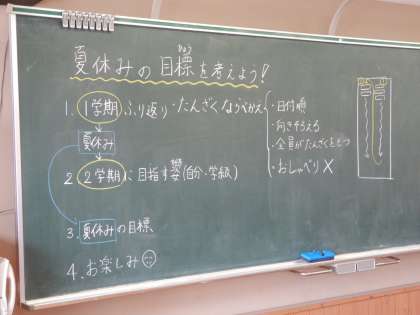 夏休みの目標を考えよう!
もくひょう
1. 1学期 ふり返り・たんざくならべかえ
・日付順
・向きそろえる
・全員がたんざくをもつ
・おしゃべり×
夏休み
2 2学期に目指す姿(自分・学級)
3. 夏休みの目標
4. お楽しみ